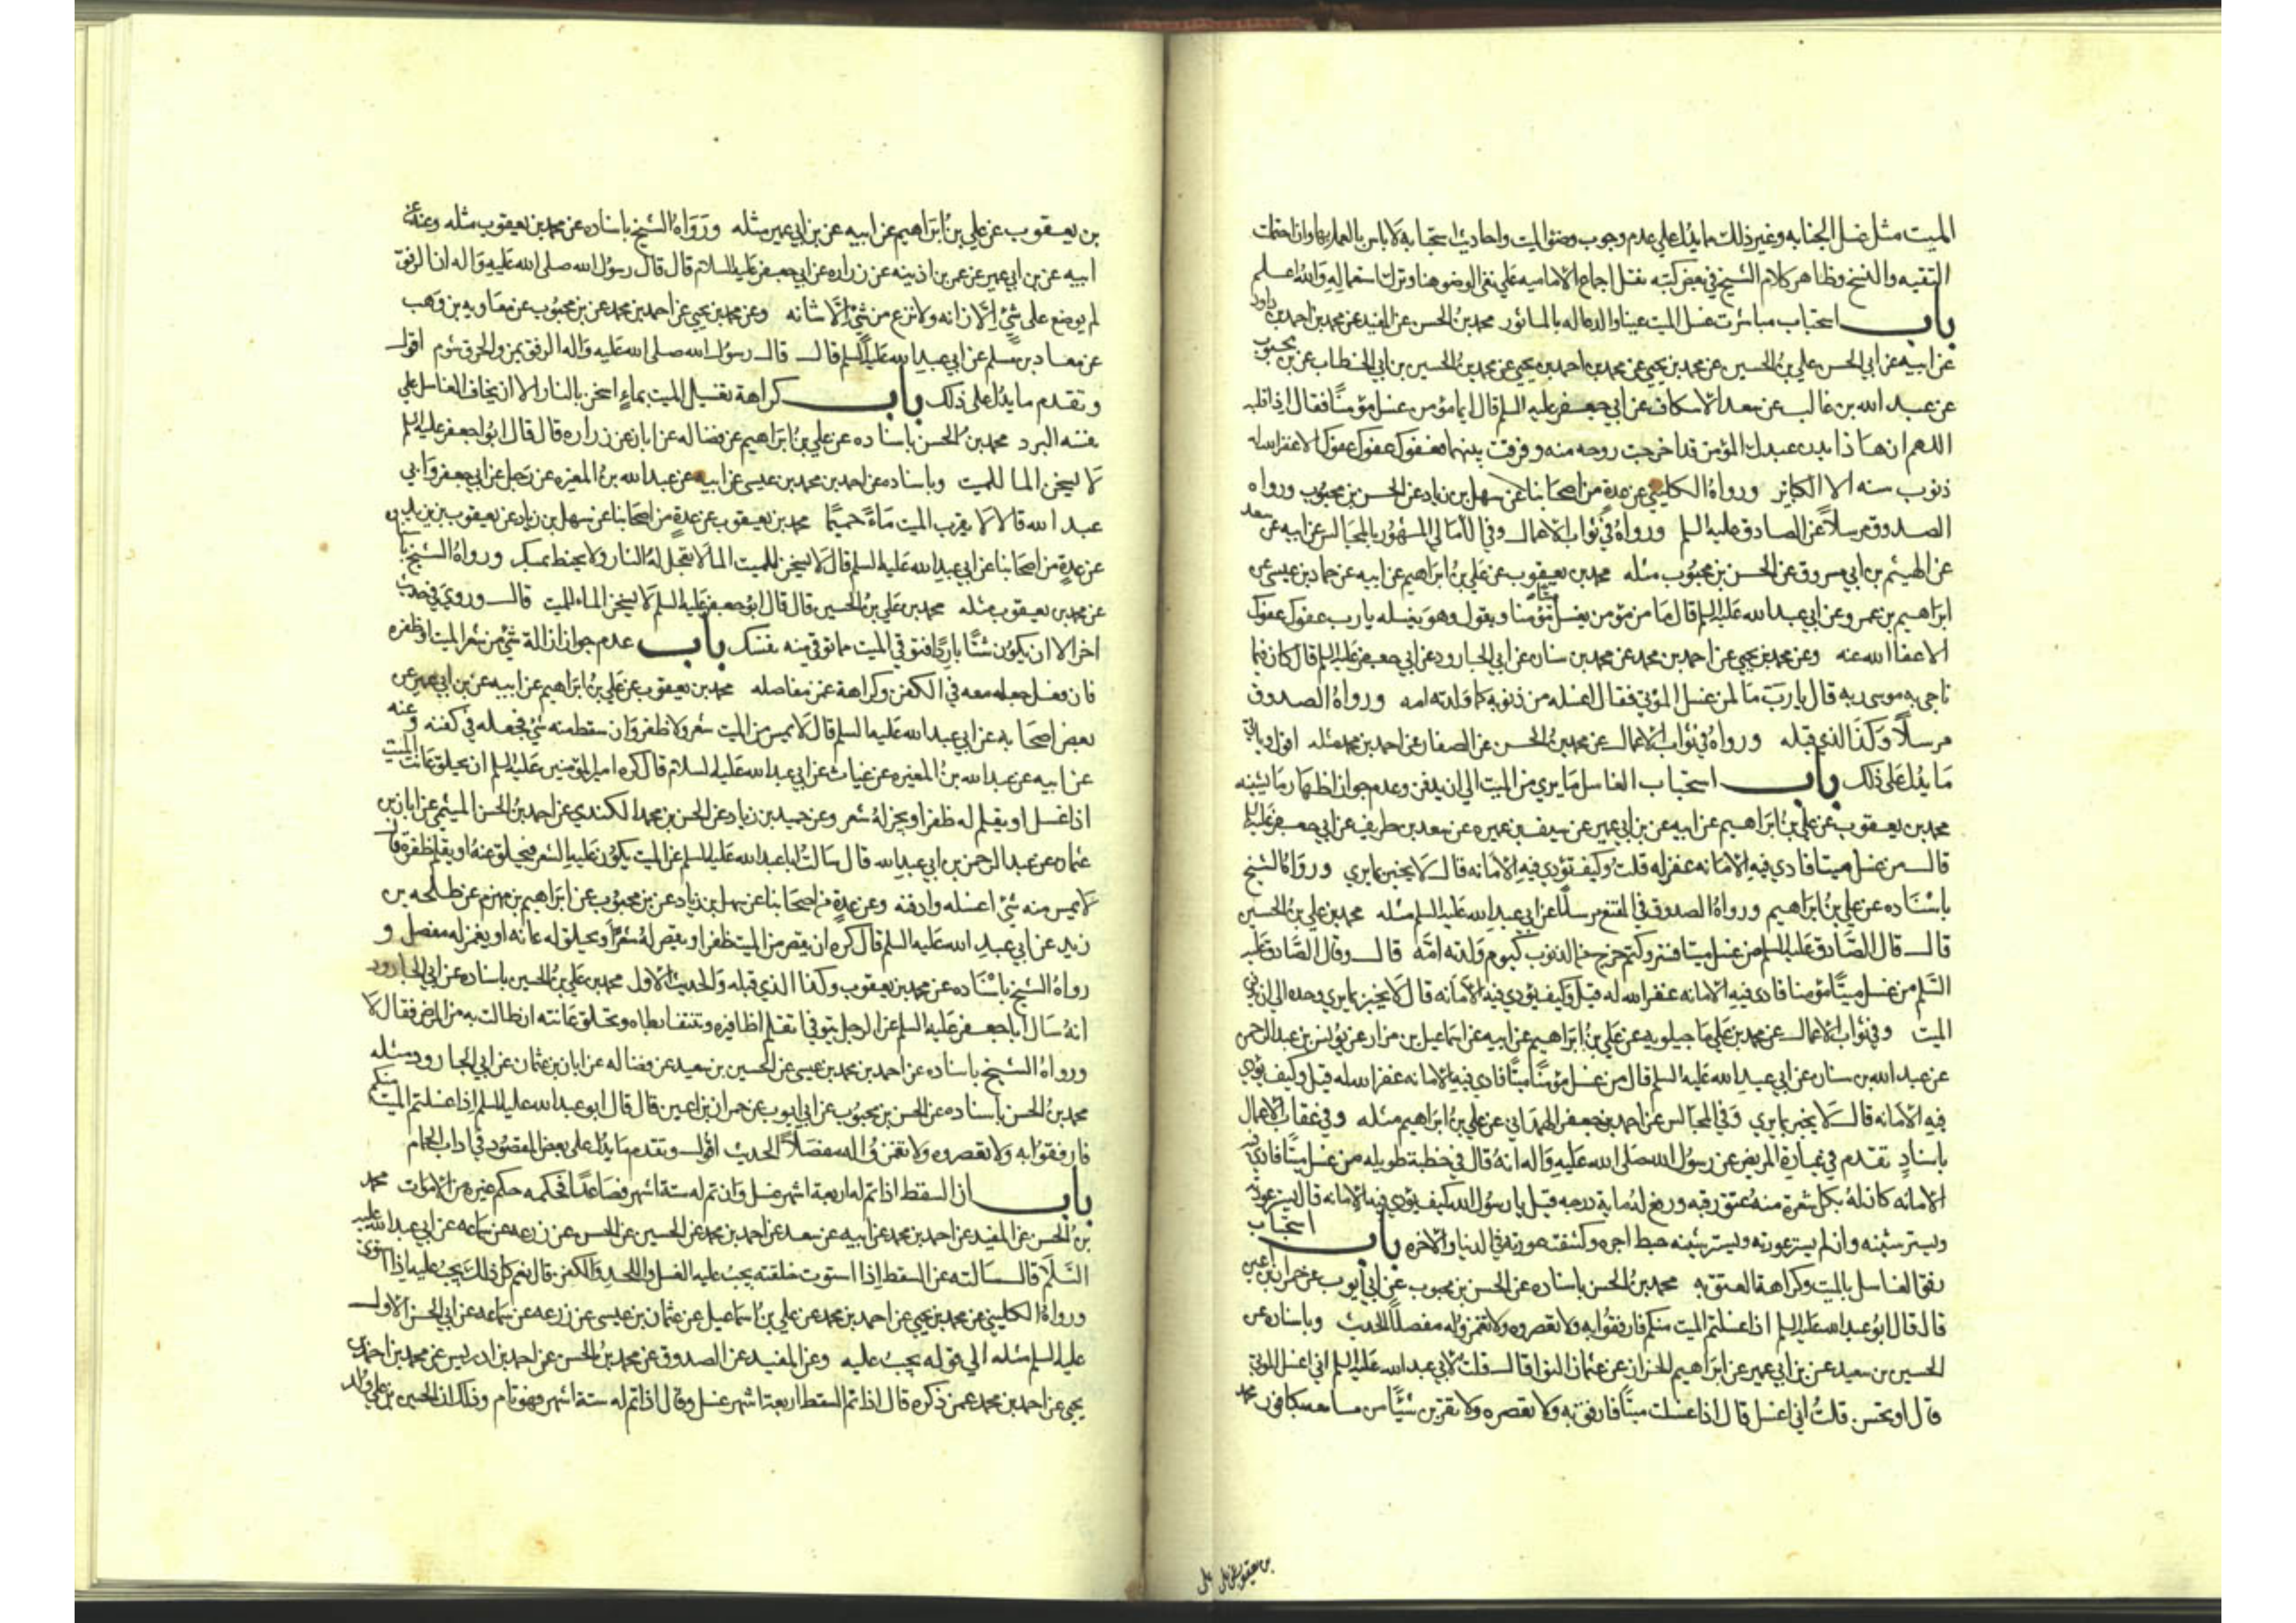 الميت مثل غسل الجنابه وغير ذلك مما يدل علي عدم وجوب وضوء الميت واحاديث استحبابه لا باس بالعمل بها وان احتملت
التقيه والنسخ وظاهر كلام الشيخ في بعض كتبه نقل اجماع الاماميه علي نفي الوضو هنا وترك استعماله والله اعلم
باب استحباب مباشرت غسل الميت عينا والدعا له بالماثور محمد بن الحسن عن المفيد عن محمد بن احمد بن داود
عن ابيه عن ابي الحسن علي بن الحسين عن محمد بن يحيي عن محمد بن احمد بن يحيي عن محمد بن الحسين بن ابي الخطاب عن بن محبوب
عن عبد الله بن غالب عن سعد الاسكاف عن ابي جعفر عليه السلم قال ايما مؤمن غسل مؤمنًا فقال اذا قلبه
اللهم ان هاذا بدن عبدك المؤمن قد اخرجت روحه منه وفرقت بينهما فعفوك عفوك عفوك الا غفر الله له
ذنوب سنه الا الكباير ورواه الكليني عن عدة من اصحابنا عن سهل بن زياد عن الحسن بن محبوب ورواه
الصدوق مرسلاً عن الصادق عليه السلم ورواه في ثواب الاعمال وفي الامالي المشهور بالمجالس عن ابيه عن سعد
عن الهيثم بن ابي مسروق عن الحسن بن محبوب مثله محمد بن يعقوب عن علي بن ابراهيم عن ابيه عن حماد بن عيسي عن
ابراهيم بن عمر وعن ابي عبد الله عليه السلم قال ما من مؤمن يغسل مؤمنا ويقول وهو يغسله يا رب عفوك عفوك
الا عفا الله عنه وعن محمد بن يحيي عن احمد بن محمد عن محمد بن سنان عن ابي الجارود عن ابي جعفر عليه السلم قال كان فيما
ناجي به موسى ربه قال يا رب ما لمن غسل الموتي فقال اغسله من ذنوبه كما ولدته امه ورواه الصدوق
مرسلاً وكذا الذي قبله ورواه في ثواب الاعمال عن محمد بن الحسن عن الصفار عن احمد بن محمد مثله اقول وياتي
ما يدل علي ذلك باب استحباب الغاسل ما يري من الميت الي ان يدفن وعدم جواز اظهار ما يشينه
محمد بن يعقوب عن علي بن ابراهيم عن ابيه عن بن ابي عمير عن سيف بن عميره عن سعد بن طريف عن ابي جعفر عليه السلم
قال من غسل ميتا فادي فيه الامانه غفر له قلت وكيف تؤدي فيه الامانه قال لا يخبر بما يري ورواه الشيخ
باسناده عن علي بن ابراهيم ورواه الصدوق في المقنع مرسلًا عن ابي عبد الله عليه السلم مثله محمد بن علي بن الحسين
قال قال الصادق عليه السلم من غسل ميتا فستر وكتم خرج من الذنوب كيوم ولدته امه قال وقال الصادق عليه
السلم من غسل ميتًا مؤمنا فادي فيه الامانه غفر الله له قيل وكيف يؤدي فيه الامانه قال لا يخبر بما يري وحده الي ان يدفن
الميت وفي ثواب الاعمال عن محمد بن علي ماجيلويه عن علي بن ابراهيم عن ابيه عن اسماعيل بن مرار عن يونس بن عبد الرحمن
عن عبد الله بن سنان عن ابي عبد الله عليه السلم قال من غسل مؤمنًا ميتًا فادي فيه الامانه غفر الله له قيل وكيف يؤدي
فيه الامانه قال لا يخبر بما يري وفي المجالس عن احمد بن جعفر الهمداني عن علي بن ابراهيم مثله وفي عقاب الاعمال
باسناد تقدم في عيادة المريض عن رسول الله صلى الله عليه واله انه قال في خطبة طويله من غسل ميتًا فادي فيه
الامانه كان له بكل شعرة منه عتق رقبه ورفع له مايه درجه قيل يا رسول الله كيف يؤدي فيه الامانه قال يستر عورته
ويستر شينه وان لم يستر عورته ويستر شينه حبط اجره وكشفت عورته في الدنيا والاخره باب استحباب
رفق الغاسل بالميت وكراهة العتق به محمد بن الحسن باسناده عن الحسن بن محبوب عن ابي ايوب عن حمران بن اعين
قال قال ابو عبد الله عليه السلم اذا غسلتم الميت منكم فارفقوا به ولا تعصروه ولا تغمزوا له مفصلًا الحديث وباسناده عن
الحسين بن سعيد عن بن ابي عمير عن ابراهيم الخزاز عن عثمان النوا قال قلت لابي عبد الله عليه السلم اني اغسل الموتي
قال او تحسن قلت اني اغسل قال اذا غسلت ميتًا فارفق به ولا تعصره ولا تقربن شيًا من مسامعه بكافور محمد
بن يعقوب عن علي
بن يعقوب عن علي بن ابراهيم عن ابيه عن بن ابي عمير مثله ورواه الشيخ باسناده عن محمد بن يعقوب مثله وعنه عن
ابيه عن بن ابي عمير عن عمر بن اذينه عن زراره عن ابي جعفر عليه السلام قال قال رسول الله صلى الله عليه واله ان الرفق
لم يوضع على شيء الا زانه ولا نزع من شيء الا شانه وعن محمد بن يحيي عن احمد بن محمد عن بن محبوب عن معاويه بن وهب
عن معاد بن مسلم عن ابي عبد الله عليه السلم قال قال رسول الله صلى الله عليه واله الرفق يمن والخرق شوم اقول
وتقدم ما يدل على ذلك باب كراهة تغسيل الميت بماء اسخن بالنار الا ان يخاف الغاسل علي
نفسه البرد محمد بن الحسن باسناده عن علي بن ابراهيم عن فضاله عن ابان عن زراره قال قال ابو جعفر عليه السلم
لا يسخن الما للميت وباسناده عن احمد بن محمد بن عيسى عن ابيه عن عبد الله بن المغيره عن رجل عن ابي جعفر وابي
عبد الله قالا لا يقرب الميت ماءً حميمًا محمد بن يعقوب عن عدة من اصحابنا عن سهل بن زياد عن يعقوب بن يزيد
عن عدة من اصحابنا عن ابي عبد الله عليه السلم قال لا يسخن للميت الما لا يعجل له النار ولا يحنط بمسك ورواه الشيخ
عن محمد بن يعقوب مثله محمد بن علي بن الحسين قال قال ابو جعفر عليه السلم لا يسخن الماء للميت قال وروي في حديث
اخر الا ان يكون شتًا باردًا فتوقي الميت مما توقي منه نفسك باب عدم جواز ازالة شيء من شعر الميت او ظفره
فان فعل جعله معه في الكفن وكراهة غمز مفاصله محمد بن يعقوب عن علي بن ابراهيم عن ابيه عن بن ابي عمير عن
بعض اصحابه عن ابي عبد الله عليه السلم قال لا يمس من الميت شعر ولا ظفر وان سقط منه شي فجعله في كفنه وعنه
عن ابيه عن عبد الله بن المغيره عن غياث عن ابي عبد الله عليه السلام قال كره امير المؤمنين عليه السلم ان يحلق عانت الميت
اذا غسل او يقلم له ظفر او يجز له شعر وعن حميد بن زياد عن الحسن بن محمد الكندي عن احمد بن الحسن الميثمي عن ابان بن
عثمان عن عبد الرحمن بن ابي عبد الله قال سالت ابا عبد الله عليه السلم عن الميت يكون عليه الشعر فيحلق عنه او يقلم ظفره قال
لا يمس منه شيء اغسله وادفنه وعن عدة من اصحابنا عن سهل بن زياد عن بن محبوب عن ابراهيم بن مهزم عن طلحه بن
زيد عن ابي عبد الله عليه السلم قال كره ان يقص من الميت ظفر او يقص له شعرًا ويحلق له عانه او يغمز له مفصل و
رواه الشيخ باسناده عن محمد بن يعقوب وكذا الذي قبله والحديث الاول محمد بن علي بن الحسين باسناده عن ابي الجارود
انه سال ابا جعفر عليه السلم عن الرجل يتوفي اتقلم اظافيره وتنتف ابطاه وتحلق عانته ان طالت به من المرض فقال لا
ورواه الشيخ باسناده عن احمد بن محمد بن عيسى عن الحسين بن سعيد عن فضاله عن ابان بن عثمان عن ابي الجارود مثله
محمد بن الحسن باسناده عن الحسن بن محبوب عن ابي ايوب عن حمران بن اعين قال قال ابو عبد الله عليه السلم اذا غسلتم الميت منكم
فارفقوا به ولا تعصروه ولا تغمزوا له مفصلًا الحديث اقول وتقدم ما يدل علي بعض المقصود في اداب الحمام
باب ان السقط اذا تم له اربعة اشهر غسل وان تم له ستة اشهر فصاعدًا فحكمه حكم غيره من الاموات محمد
بن الحسن عن المفيد عن احمد بن محمد عن ابيه عن سعد عن احمد بن محمد عن الحسين عن الحسن عن زرعه عن سماعه عن ابي عبد الله عليه
السلم قال سالته عن السقط اذا استوت خلقته يجب عليه الغسل واللحد والكفن قال نعم كل ذلك يجب عليه اذا استوي
ورواه الكليني عن محمد بن يحيي عن احمد بن محمد عن علي بن اسماعيل عن عثمان بن عيسى عن زرعه عن سماعه عن ابي الحسن الاول
عليه السلم مثله الي قوله يجب عليه وعن المفيد عن الصدوق عن محمد بن الحسن عن احمد بن ادريس عن محمد بن احمد بن
يحيي عن احمد بن محمد عمن ذكره قال اذا تم السقط اربعة اشهر غسل وقال اذا تم له ستة اشهر فهو تام وذلك ان الحسين بن علي ولد